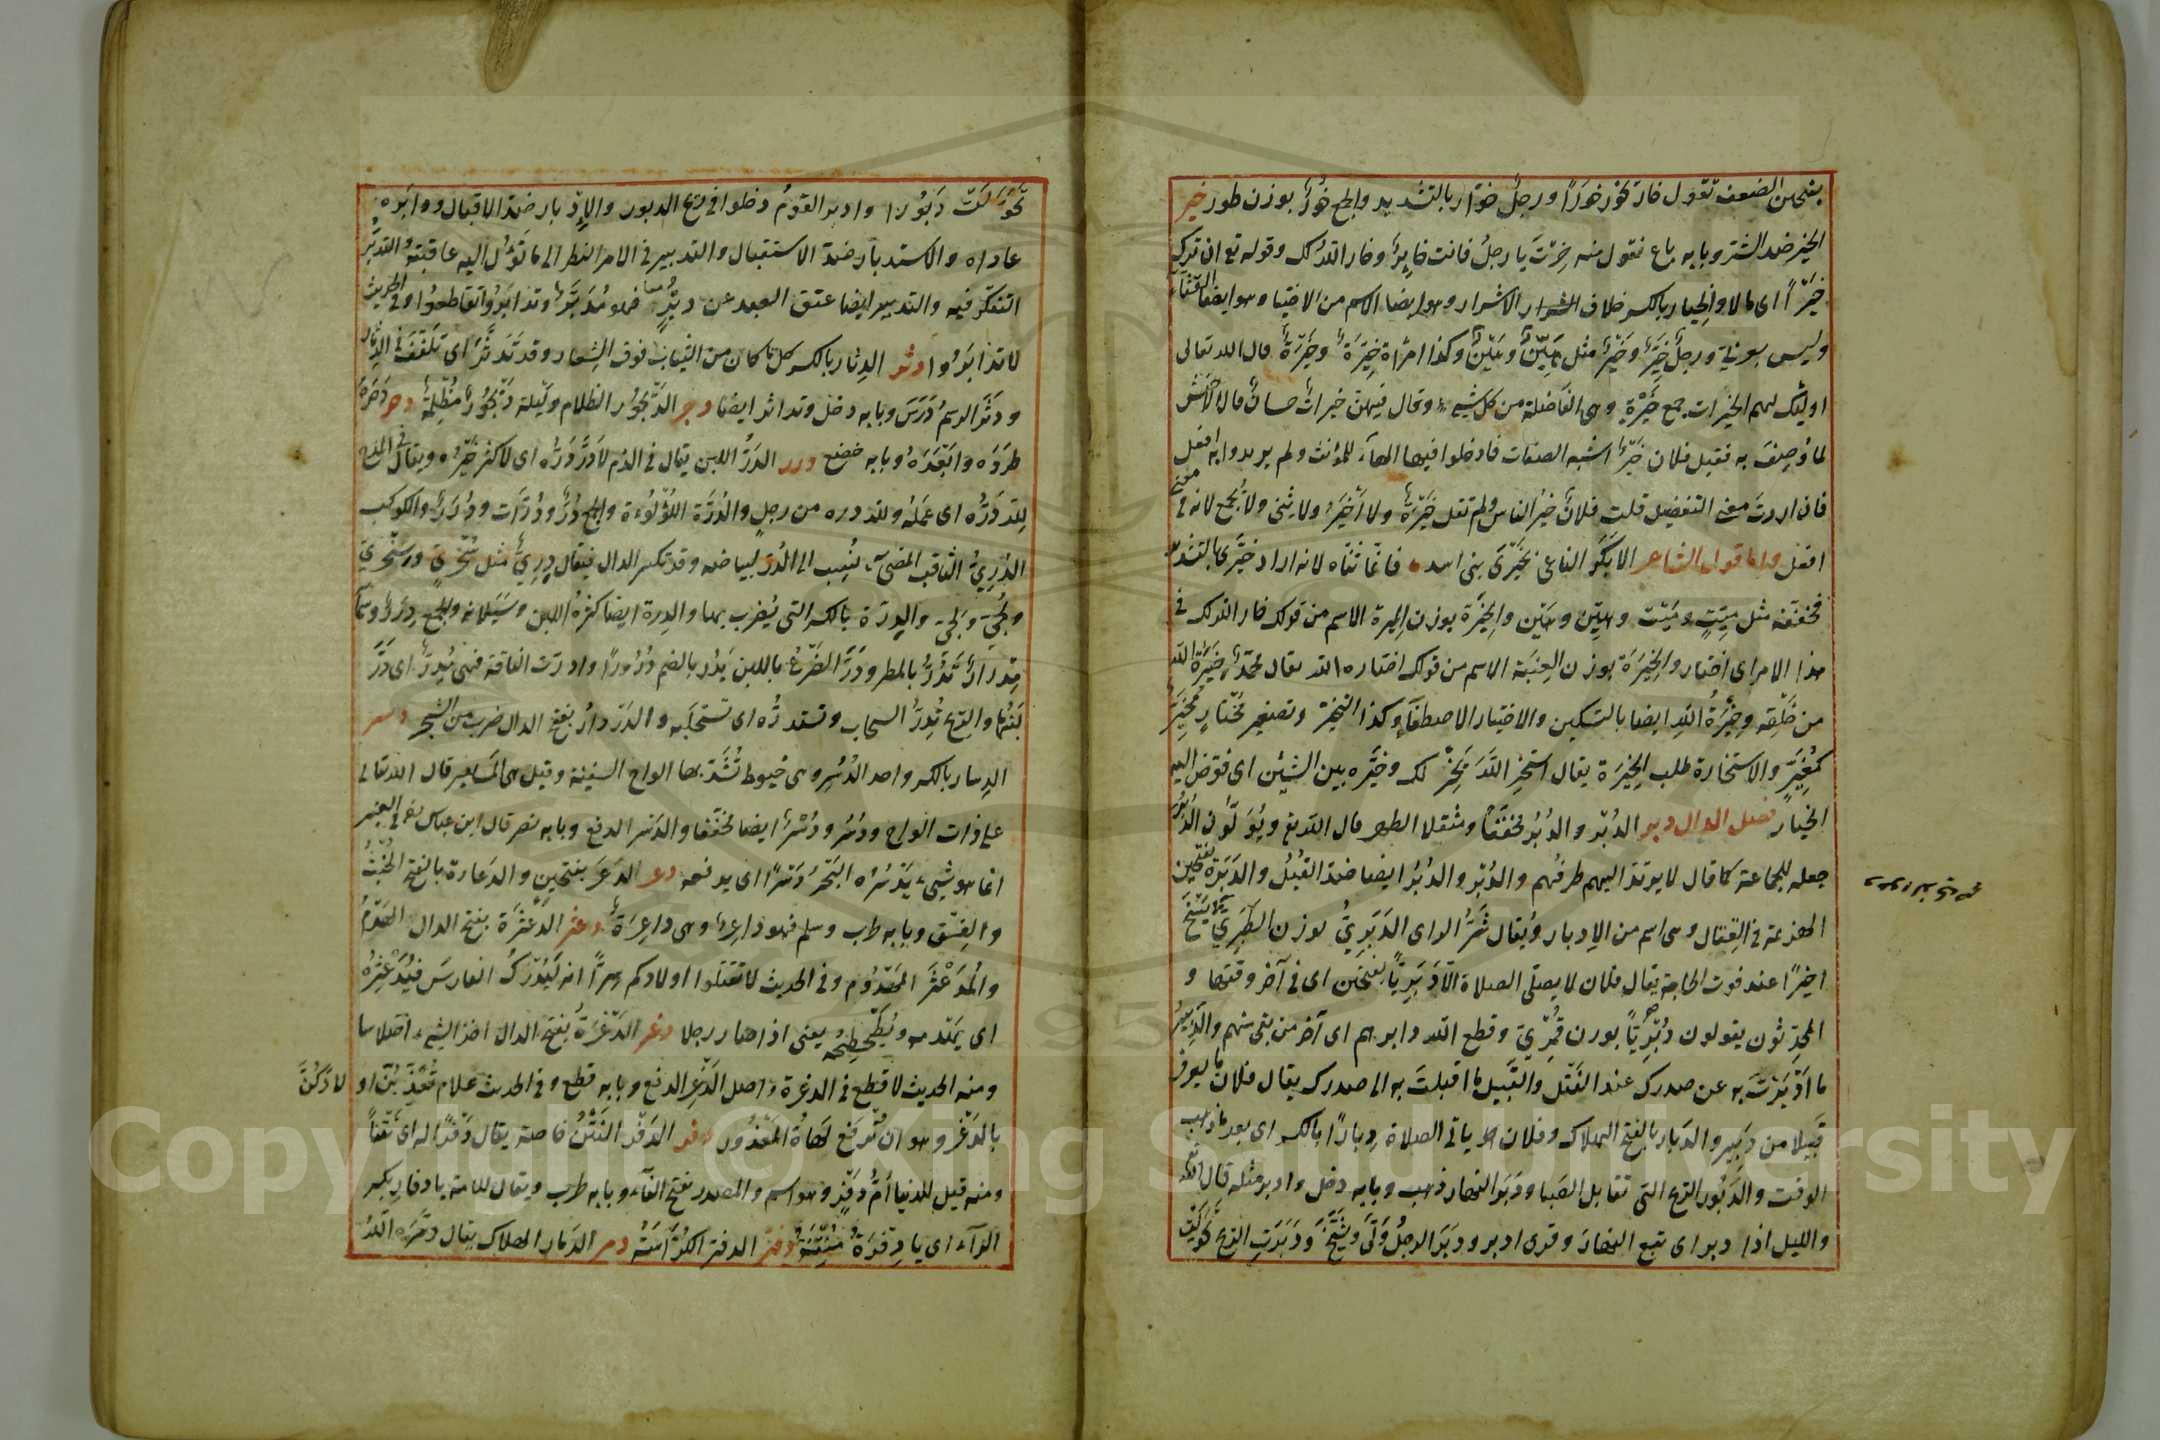 بفتحتين الضعف تقول خار يخور خورا ورجل خوار بالتشديد والجمع خور بوزن طور خير
الخير ضد الشر وبابه باع تقول منه خرت يا رجل فانت خاير وخار الله لك وقوله تع ان ترك
خيرا اى مالا والخيار بالكسر خلاف الاشرار وهو ايضا الاسم من الاختيار وهو ايضا القثاء
وليس بعربي ورجل خير وخير مثل هين وهين وكذا امراة خيرة وخيرة قال الله تعالى
اولئك لهم الخيرات جمع خيرة وهى الفاضلة من كل شىء وقال فيهن خيرات حسان قال الاخفش
لما وصف به فقيل فلان خير اشبه الصفات فادخلوا فيها الهاء للمؤنث ولم يريدوا به افعل
فان اردت معنى التفضيل قلت فلان خير الناس ولم تقل خيرة ولا اخير ولا يثنى ولا يجمع لانه فى معنى
افعل واما قول الشاعر الا بكر الناعى بخيرى بنى اسد فانما ثناه لانه اراد خيرى بالتشديد
فخففه مثل ميت وميت وهين وهين والخيرة بوزن الميرة الاسم من قولك خار الله لك فى
هذا الامر اى اختار والخيرة بوزن العنبة الاسم من قولك اختاره الله يقال محمد خيرة الله
من خلقه وخيرة الله ايضا بالتسكين والاختيار الاصطفاء وكذا التخير وتصغير مختار مخير
كمغير والاستخارة طلب الخيرة يقال استخر الله يخر لك وخيره بين الشيئين اى فوض اليه
الخيار فصل الدال دبر الدبر والدبر مخففا ومثقلا الظهر قال الله تع ويولون الدبر
جعله للجماعة كما قال لا يرتد اليهم طرفهم والدبر والدبر ايضا ضد القبل والدبرة بفتحتين
الهزيمة فى القتال وهى اسم من الادبار ويقال شر الراى الدبرى بوزن الطبرى يسنح
اخيرا عند فوت الحاجة يقال فلان لا يصلى الصلاة الا دبريا بفتحتين اى فى آخر وقتها و
المحدثون يقولون دبريا بوزن قمرى وقطع الله دابرهم اى آخر من بقى منهم والدبير
ما ادبرت به عن صدرك عند الفتل والقبيل ما اقبلت به الى صدرك يقال فلان ما يعرف
قبيلا من دبير والدبار بالفتح الهلاك وفلان ياتى الصلاة دبارا بالكسر اى بعد ما ذهب
الوقت والدبور الريح التى تقابل الصبا ودبر النهار ذهب وبابه دخل وادبر مثله قال الله
والليل اذا دبر اى تبع النهار وقرى ادبر ودبر الرجل ولى وشيخ ودبرت الريح تحولت
تحولت دبورا وادبر القوم دخلوا فى ريح الدبور والادبار ضد الاقبال ودابره
عاداه والاستدبار ضد الاستقبال والتدبير فى الامر النظر الى ما تؤل اليه عاقبته والتدبر
التفكر فيه والتدبير ايضا عتق العبد عن دبر فهو مدبر وتدابروا تقاطعوا وفى الحديث
لا تدابروا دثر الدثار بالكسر كل ما كان من الثياب فوق الشعار وقد تدثر اى تلفف فى الدثار
ودثر الرسم درس وبابه دخل وتداثر ايضا دجر الديجور الظلام وليلة ديجور مظلمة دحر دحره
طرده وابعده وبابه خضع درر الدر اللبن يقال فى الذم لا در دره اى لا كثر خيره ويقال فى المدح
لله دره اى عمله ولله دره من رجل والدرة اللؤلؤة والجمع در ودرات ودرر والكوكب
الدرى الثاقب المضىء نسب الى الدر لبياضه وقد تكسر الدال فيقال درى مثل سخرى وسخرى
ولجى ولجى والدرة بالكسر التى يضرب بها والدرة ايضا كثرة اللبن وسيلانه والجمع درر وسماء
مدرار تدر بالمطر ودر الضرع باللبن يدر بالضم درورا وادرت الناقة فهى مدر اى در
لبنها والريح تدر السحاب وتستدره اى تستحلبه والدردار بفتح الدال ضرب من الشجر دسر
الدسار بالكسر واحد الدسر وهى خيوط تشد بها الواح السفينة وقيل هى المسامير قال الله تعالى
على ذات الواح ودسر ودسر ايضا مخففا والدسر الدفع وبابه نصر قال ابن عباس فى العنبر
انما هو شىء يدسره البحر دسرا اى يدفعه دعر الدعر بفتحتين والدعارة بالفتح الخبث
والفسق وبابه طرب وسلم فهو داعر وهى داعرة دعثر الدعثرة بفتح الدال الهدم
والمدعثر المهدوم وفى الحديث لا تقتلوا اولادكم سرا انه ليدرك الفارس فيدعثره
اى يهدمه ويطحطحه يعنى اذا صار رجلا دغر الدغرة بفتح الدال اخذ الشىء اختلاسا
ومنه الحديث لا قطع فى الدغرة واصل الدغر الدفع وبابه قطع وفى الحديث علام تعذبن اولادكن
بالدغر وهو ان ترفع لهاة المعذور دفر الدفر النتن خاصة يقال دفرا له اى نتنا
ومنه قيل للدنيا ام دفر وهو اسم والمصدر بفتح الفاء وبابه طرب ويقال للامة يا دفار بكسر
الراء اى يا دفرة منتنة دفتر الدفتر الكراسة دمر الدمار الهلاك يقال دمره الله
Copyright © King Saud University